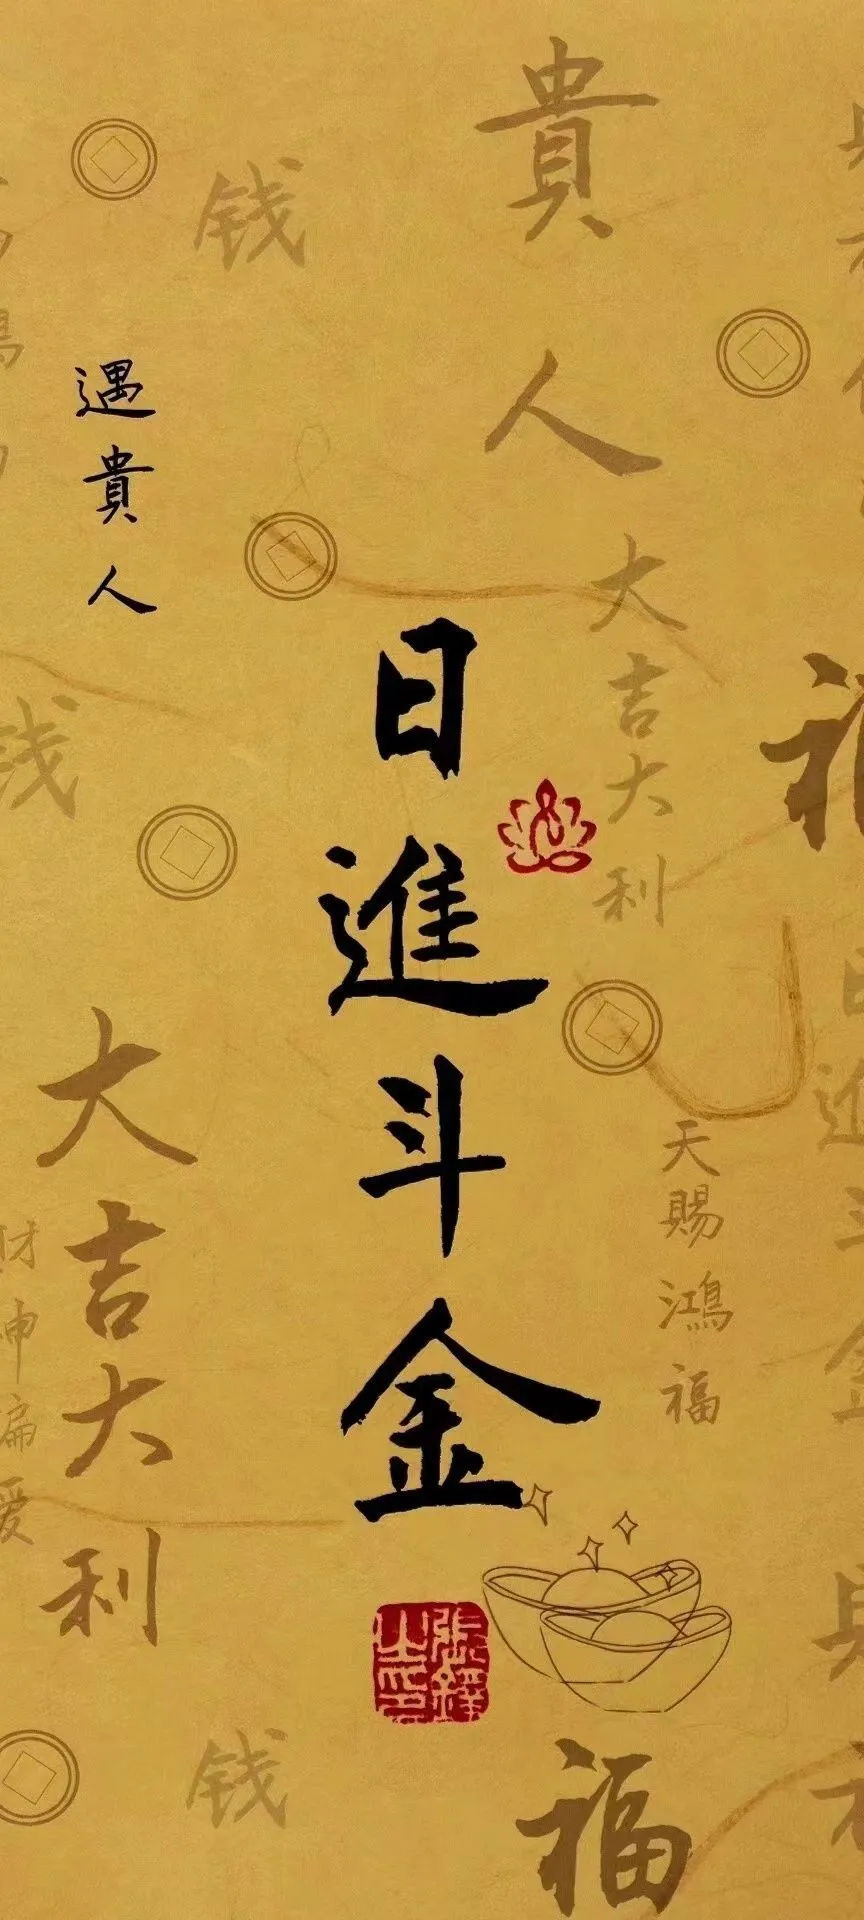 貴人
钱
遇貴人
大吉大利
日進斗金
钱
福
大吉大利
天賜鴻福
日進斗金
財神偏爱
钱
福